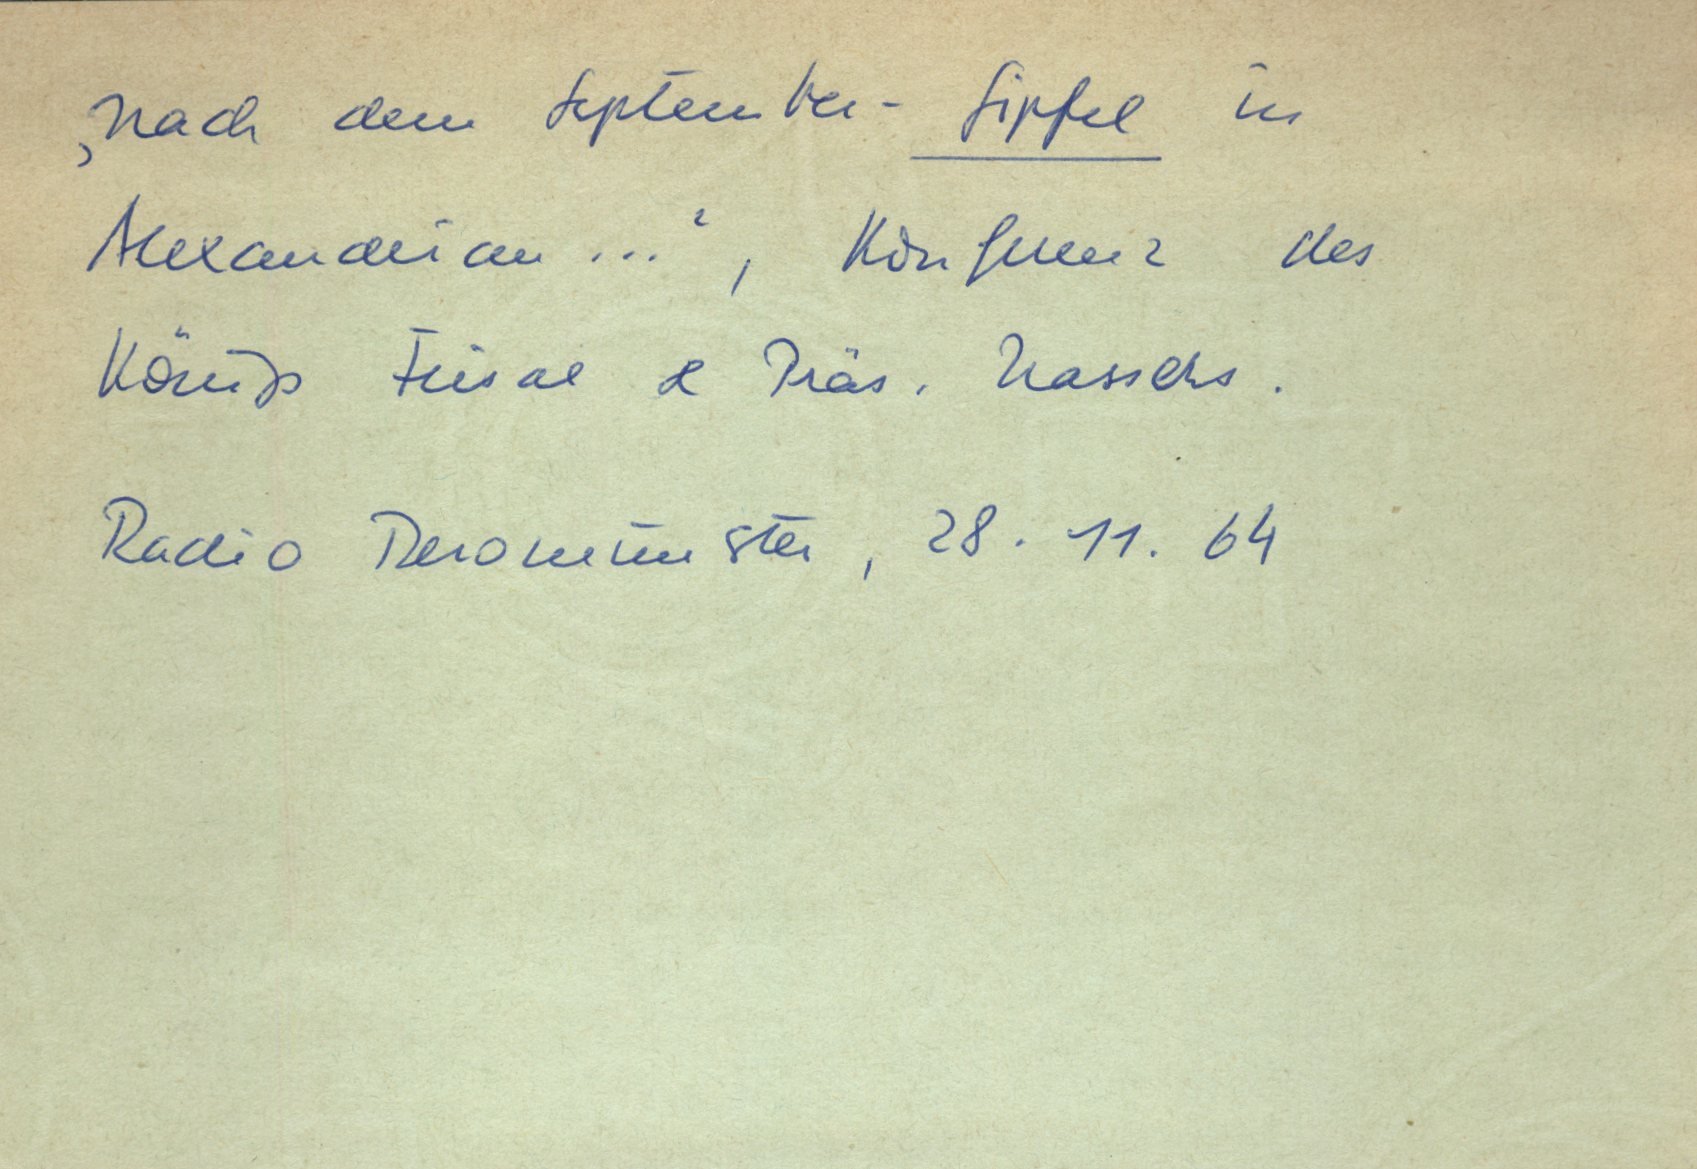 ‚Nach dem September-Gipfel in
Alexandrian ...‘, Konferenz des
Königs Feisal & Präs. Nassers.
Radio Beromünster, 28. 11. 64